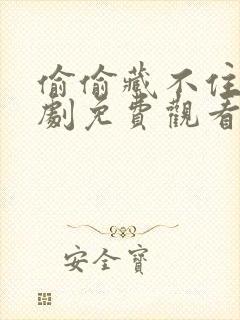 偷偷藏不住
劇免費觀看
安全寶